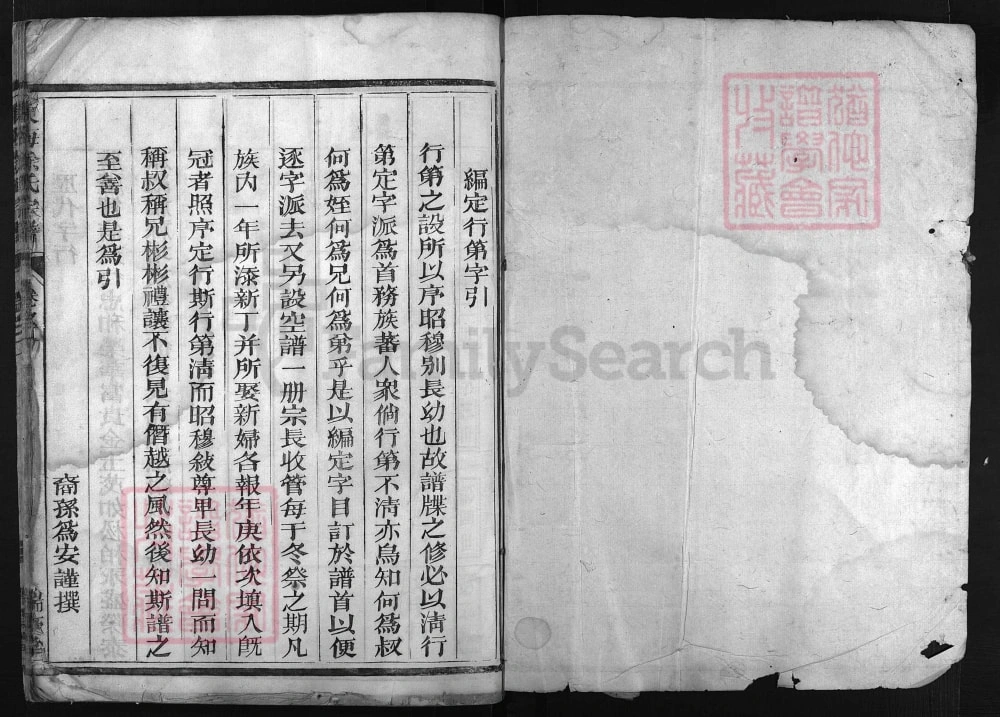 編定行第字引
行第之設所以序昭穆别長幼也故譜牒之修必以清行
第定字派為首務族蕃人衆倘行第不清亦烏知何為叔
何為姪何為兄何為弟乎是以編定字目訂於譜首以便
逐字派去又另設空譜一册宗長收管每于冬祭之期凡
族内一年所添新丁并所娶新婦各報年庚依次填入既
冠者照序定行斯行第清而昭穆敍尊卑長幼一問而知
稱叔稱兄彬彬禮讓不復見有僭越之風然後知斯譜之
至善也是為引
裔孫為安謹撰
譜學會
收藏
FamilySearch